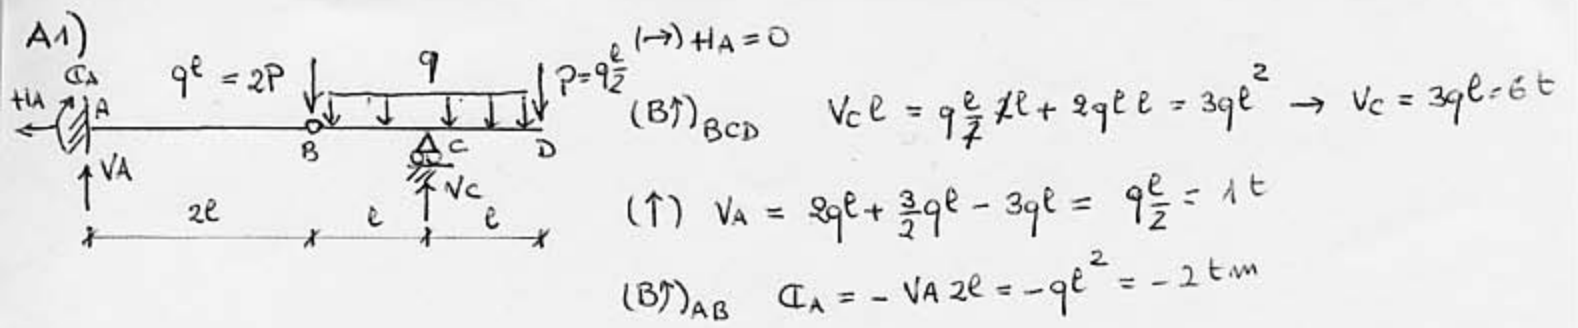 A1)
(→) HA = 0
qℓ = 2P
q
P = q ℓ/2
CA
HA
A
B
C
D
VA
VC
2ℓ
ℓ
ℓ
(B↑)BCD VC ℓ = q ℓ/2 2ℓ + 2qℓ ℓ = 3qℓ² → VC = 3qℓ = 6 t
(↑) VA = 2qℓ + 3/2 qℓ - 3qℓ = q ℓ/2 = 1 t
(B↑)AB CA = - VA 2ℓ = - qℓ² = - 2 t m